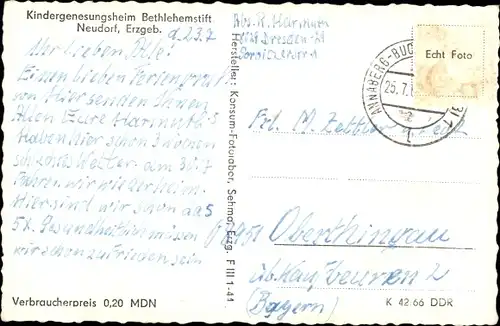 Kindergenesungsheim Bethlehemstift
Neudorf, Erzgeb.
d 23.7
Ihr Lieben, Alle!
Einen lieben Feriengruß
von Hier senden Ihnen
Allen Eure Harmuth's
Haben hier schon 3 Wochen
schönes Wetter. am 30.7
fahren wir wieder heim.
Hier sind wir schon das
5x. Gesundheitlich müssen
wir schon zufrieden sein
Verbraucherpreis 0,20 MDN
Hersteller: Konsum-Fotolabor, Sehma, Erzg. F III 1-41
Abs. H. Harmuth
Dresden-
Echt Foto
ANNABERG-BUCH
25.7.
Frl. M. Zettler
8951 Oberthingau
üb. Kaufbeuren 2
(Bayern)
K 42 66 DDR